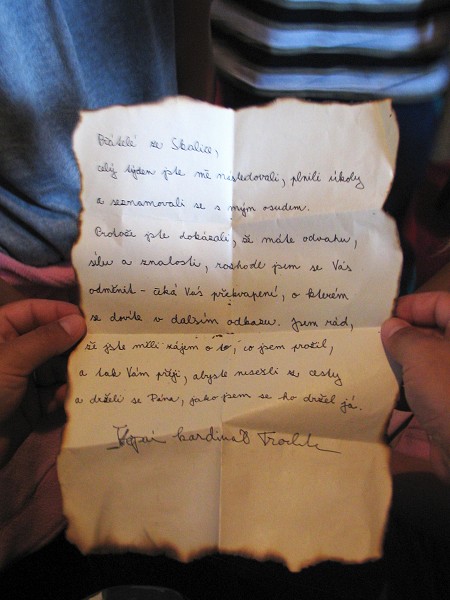 Přátelé ze Skalice,
celý týden jste mě následovali, plnili úkoly
a seznamovali se s mým osudem.
Protože jste dokázali, že máte odvahu,
sílu a znalosti, rozhodl jsem se Vás
odměnit - čeká Vás překvapení, o kterém
se dovíte v dalším odkazu. Jsem rád,
že jste měli zájem o to, co jsem prožil,
a tak Vám přeji, abyste nesešli z cesty
a drželi se Pána, jako jsem se ho držel já.
Štěpán kardinál Trochta